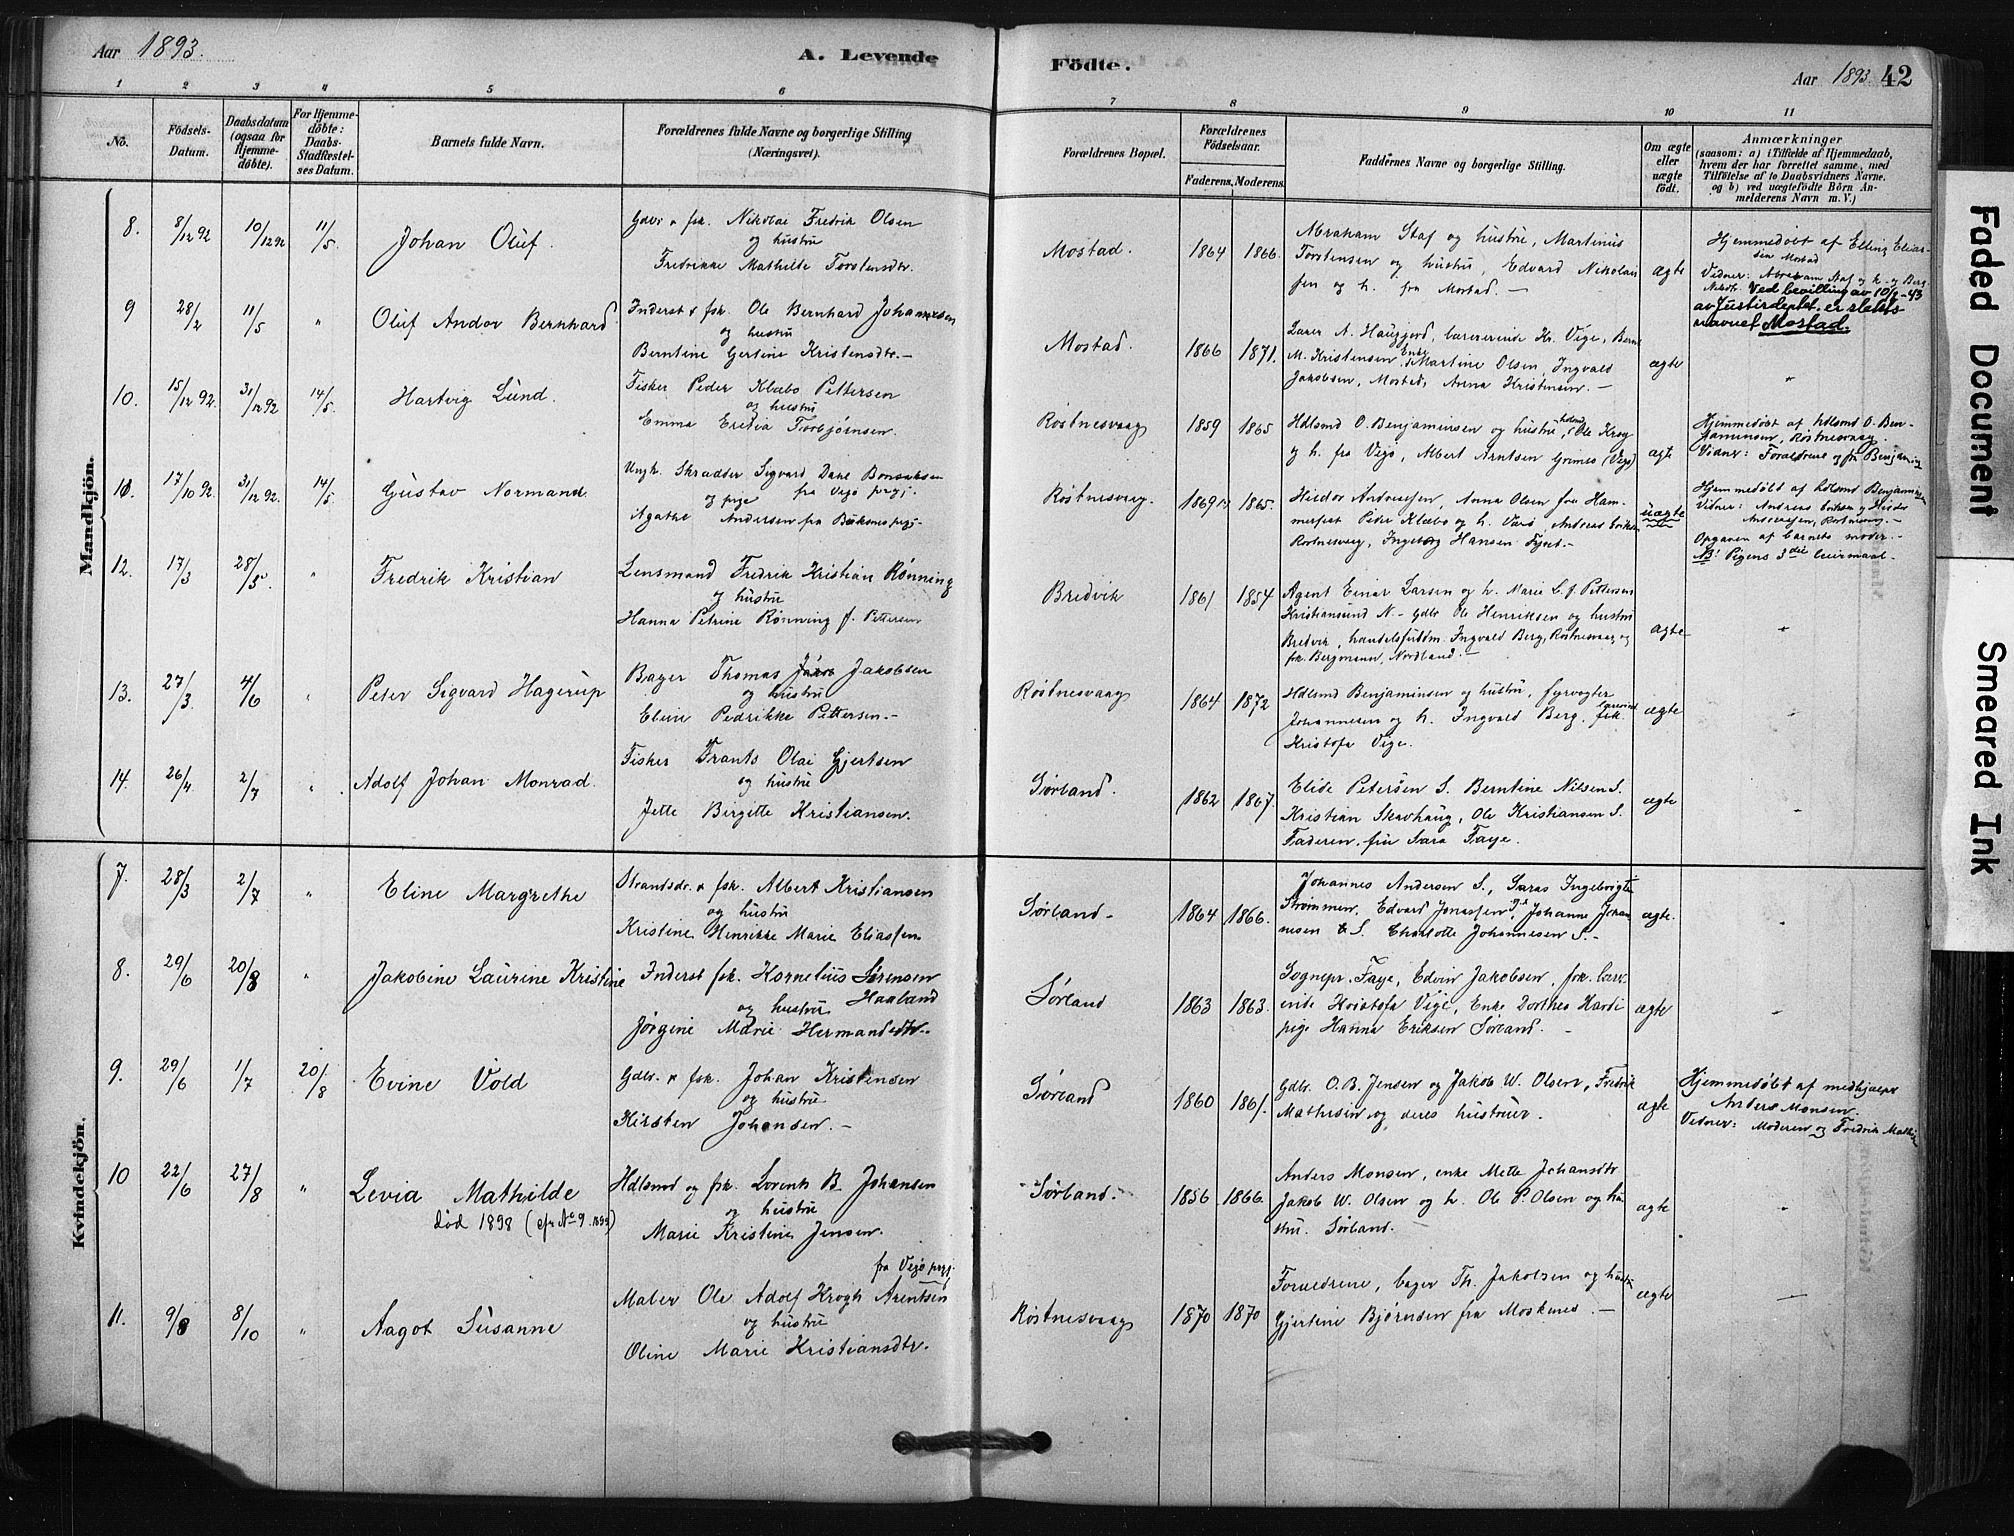 Aar 1893.
A. Levende
Födte.
Aar 1893. 42
1 2 3 4 5 6 7 8 9 10 11
No.
Födsels-
Datum.
Daabsdatum
(ogsaa for
Hjemme-
döbte).
For Hjemme-
döbte:
Daabs-
Stadfæstel-
ses Datum.
Barnets fulde Navn.
Forældrenes fulde Navne og borgerlige Stilling
(Næringsvei).
Forældrenes Bopæl.
Forældrenes
Födselsaar.
Faderens. Moderens.
Faddernes Navne og borgerlige Stilling.
Om ægte
eller
uægte
födt.
Anmærkninger
(saasom: a) i Tilfælde af Hjemmedaab,
hvem der har forrettet samme, med
Tilföielse af to Daabsvidners Navne,
og b) ved uægtefödte Börn An-
melderens Navn m. V.)
Mandkjön.
8. 8/12 92 10/12 92 11/5. Johan Oluf.
Gdbr & fsk. Nikolai Fredrik Olsen
og hustru
Fredrikke Mathilde Torstensdtr.
Mostad. 1864 1866.
Abraham Staf og hustru, Martinus
Torstensen og hustru, Edvard Nikolai
sen og h. fra Mostad. —
ægte
Hjemmedøbt af Elling Elias-
sen Mostad
Vidner: Abraham Staf og h. og Berg
Ved bevilling av 10/2-43
av Justisdeptet. er slekts-
navnet Mostad.
9 28/2 11/5 " Oluf Andor Bernhard
Inderst & fsk. Ole Bernhard Johannesen
og hustru
Berntine Gertine Kristensdtr.—
Mostad. 1866 1871.
Lærer A. Haugjord, lærerinde Kr. Vige, Bernt
M. Kristensen, Enke Martine Olsen, Ingvald
Jakobsen, Mostad, Anna Kristensen. —
ægte "
10. 15/12 92. 31/12 92 14/5. Hartvig Lund.
Fisker Peder Klæbo Pettersen
og hustru
Emma Eretia Torbjørnsen.
Røstnesvaag 1859 1865
Hdlsmd O. Benjaminsen og hustru, Ole Krog
og h. fra Vegø, Albert Arntsen Grimes (Vegø)
ægte
Hjemmedøbt af hdlsmd O. Ben-
jaminsen, Røstnesvaag.
Vidner: Forældrene og fru Benjamins
11. 17/10 92. 31/12 92. 14/5. Gustav Normand.
Ungk. Skrædder Sigvard Dane Bonsaksen
og pige fra Vegø prgj.
Agathe Andersen fra Buksnes prgj.
Røstnesvaag. 1869 1865.
Hildor Andreassen, Anna Olsen fra Ham-
merfest Peter Klæbo og h. Værø, Andreas Eriksen
Røstnesvaag, Ingeborg Hansen Fyret.—
uægte
Hjemmedøbt af hdlsmd Benjaminsen
Vidner: Andreas Eriksen og Hildor
Andreassen, Røstnesvaag.—
Opgaven af barnets moder.—
NB! Pigens 3die leiermaal—
12. 17/3 28/5. " Fredrik Kristian
Lensmand Fredrik Kristian Rønning
og hustru
Hanna Petrine Rønning f. Pettersen
Bredvik 1861 1854
Agent Einar Larsen og h. Marie L. f. Pettersen
Kristiansund N.— gdbr. Ole Henriksen og hustru
Bredvik, handelsfuldm. Ingvald Berg, Røstnesvaag og
frk. Bergmann, Nordland.—
ægte "
13. 27/3 4/6 " Peter Sigvard Hagerup
Bager Thomas Jakobsen
og hustru
Eline Pedrikke Pettersen.—
Røstnesvaag 1864 1872
Hdlsmd Benjaminsen og hustru, fyrvogter
Johannesen og h. Ingvald Berg. lærerinde frk.
Kristofa Vige.
ægte "
14. 26/4 2/7 " Adolf Johan Monrad.
Fisker Frants Olai Gjertsen
og hustru
Jette Birgitte Kristiansen.
Sørland. 1862 1867.
Elide Petersen S. Berntine Nilsen S.
Kristian Skavhaug, Ole Kristiansen S.
Faderen, fru Sara Faye.
ægte "
Kvindekjön.
7. 28/3 2/7 " Eline Margrethe
Strandsdr. & fsk. Albert Kristiansen
og hustru
Kristine Henrikke Marie Eliassen
Sørland— 1864 1866.
Johannes Andersen S., Saras Ingebrigts
Strømmen, Edvard Jonassen, Johanne Johan
nesen S. Charlotte Johannesen S.—
ægte. "
8. 29/6 20/8 " Jakobine Laurine Kristine
Inderst fsk. Kornelius Sørensen
og hustru Haaland
Jørgine Marie Hermansdtr.—
Sørland 1863 1863.
Sognepr. Faye, Edvin Jakobsen, frk. lærer-
inde Kristofa Vige, Enke Dorthea Hardi
pige Hanna Eriksen Sørland. —
ægte "
9. 29/6 1/7 20/8 Evine Vold
Gdbr. & fsk. Johan Kristensen
og hustru
Kirsten Johansen.—
Sørland 1860 1861.
Gdbr. O. B. Jensen og Jakob W. Olsen, Fredrik
Mathisen og deres hustruer.
ægte
Hjemmedøbt af medhjælper
Anders Monsen.
Vidner: Moderen og Fredrik Mathis
10 22/6 27/8 " Levia Mathilde
død 1898 (cfr No 9. 1899)
Hdlsmd og fsk. Lorents B. Johansen
og hustru
Marie Kristine Jensen.
Sørland. 1856 1866.
Anders Monsen, enke Mette Johansdtr
Jakob W. Olsen og h. Ole P. Olsen og hu
stru. Sørland.
ægte "
11. 9/8 8/10 " Aagot Susanne
fra Vegø prgj.
Maler Ole Adolf Krogh Arentsen
og hustru
Oline Marie Kristiansdtr.
Røstnesvaag 1870 1870
Forældrene, bager Th. Jakobsen og hustru
Gjertine Bjørnsen fra Moskenes. —
ægte —
Faded Document
Smeared Ink